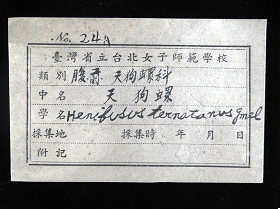 No. 24A
臺灣省立台北女子師範學校
類別 腹足 天狗螺科
中名 天狗螺
學名 Hemifusus ternatanus Gmel
採集地 採集時 年 月 日
附記